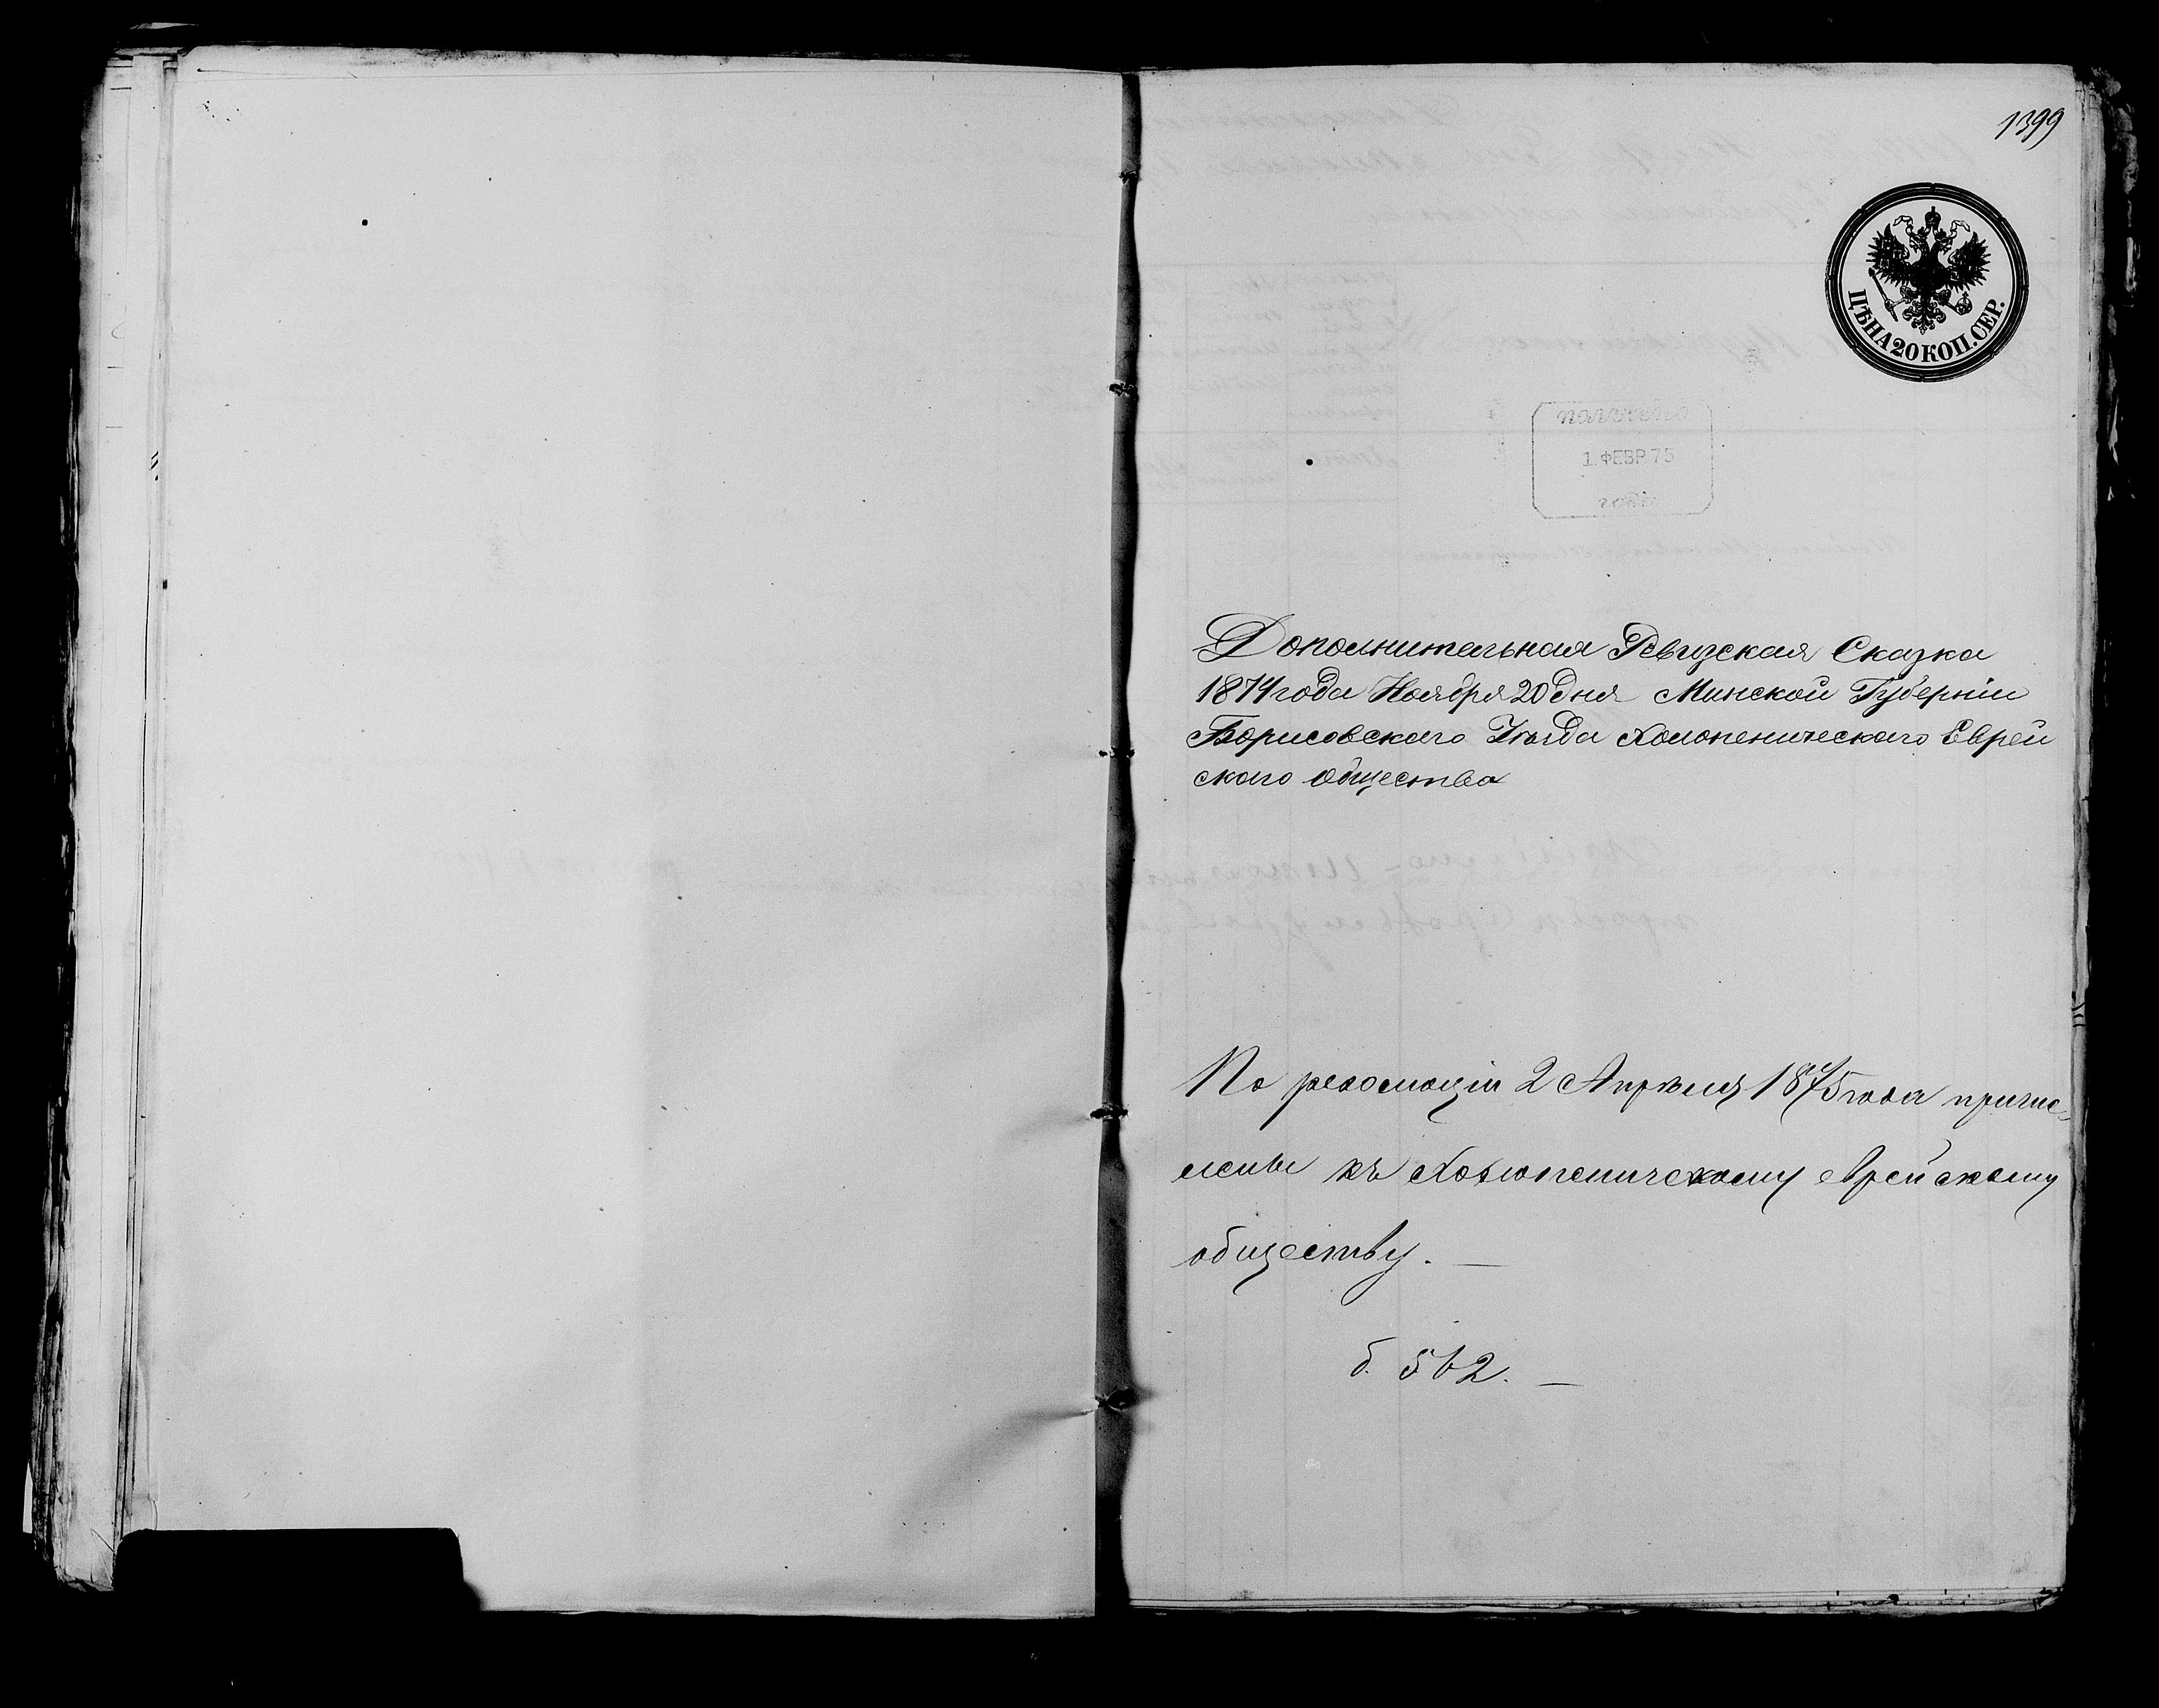 1399
ЦѢНА 20 КОП. СЕР.
получено
1 ФЕВР 75
года
Дополнительная Ревизская Сказка
1874 года Ноября 20 дня Минской Губерніи
Борисовскаго Уѣзда Холопеническаго Еврей
скаго Общества
По резолюціи 2 Апрѣля 1875 года причис-
лены къ Холопеническому еврейскому
обществу. —
б. 562. —